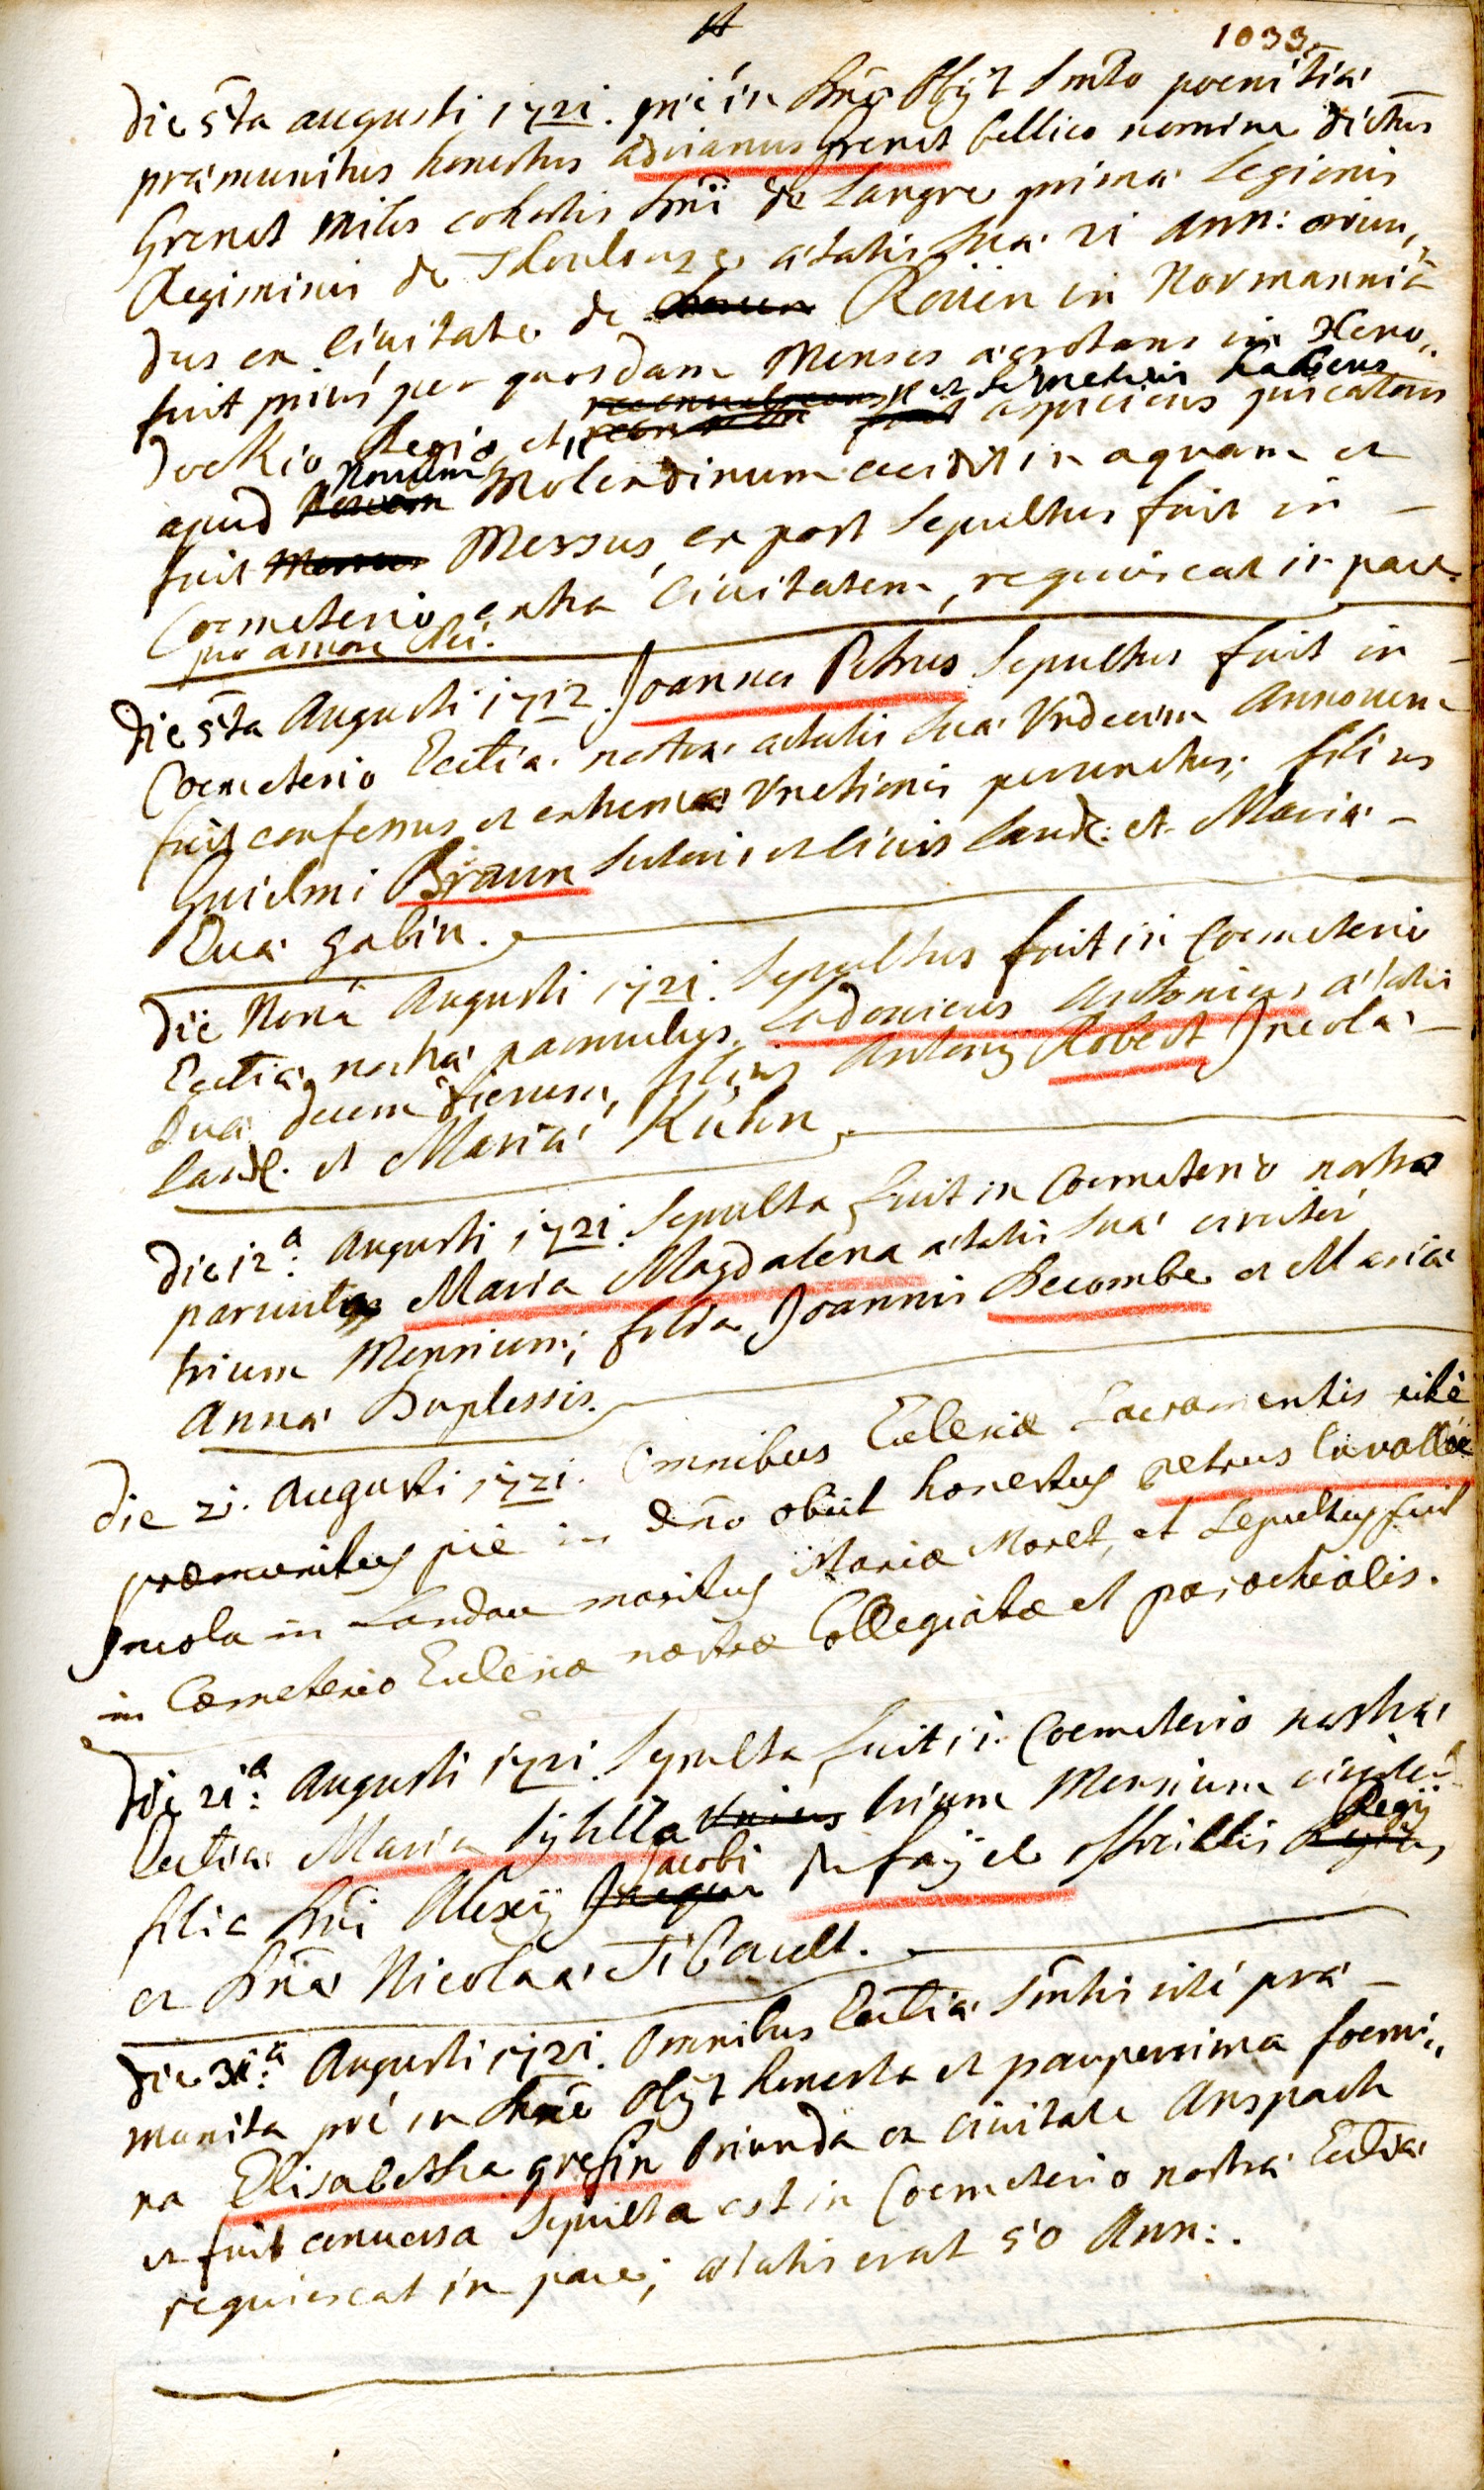 1033.
Die 5ta augusti 1721. pie in Dno Obÿt Smto poenitia
præmunitus honestus adrianus Grenet bellico nomine dictus
Grenet Miles cohortis Dni de Langre prima Legionis
Regiminis de Thoulouze ætatis Sua 21 Ann: oriun„
dus ex civitate de Roüen in Normannia
fuit prius per quosdam Menses ægrotans in Xeno„
dochio Regio et febrim habens aspiciens piscatores
apud Novum Molendinum cecidit in aquam et
fuit Mersus, ex post Sepultus fuit in –
Coemeterio extra civitatem, requiescat in pace.
pro amore Dei.
Die 5ta Augusti 1712. Joannes Petrus Sepultus fuit in –
Coemeterio Ecctiæ nostræ ætatis Sua Vndecim Annorum
fuit confessus et extrema Vnctionis perunctus; filius
Guielmi Braun Sutoris et civis Land: et Maria –
Eva gabin.
Die Nona Augusti 1721. Sepultus fuit in Coemeterio
Ecctiæ nostra parvulus Ludovicus Antonius ætatis
Sua decem dierum, filius Antonij Robert Incola –
Land. et Maria Kuhn.
Die 12a: Augusti 1721. Sepulta fuit in Coemeterio nostro
parvula Maria Magdalena ætatis Sua circiter
trium Mensium; filia Joannis Decombe et Maria
Anna Duplessis.
Die 21. Augusti 1721. Omnibus Eclesiæ Sacramentis rite
præmunitus pie in Dno obiit honestus petrus Cavallié
Incola in Landau maritus Mariæ Moret, et Sepultus fuit
in Cæmeterio Eclesiæ nostræ Collegiatæ et parochialis.
Die 21a: Augusti 1721. Sepulta fuit in Coemeterio nostra
Ecctiæ Maria Sÿbilla trium Mensium circiter
filia Dni Alexÿ Jacobi Du faÿ et Regÿ
et Dna Nicolaa Tibault.
Die 31a: Augusti 1721. Omnibus Ecctia Smtis rite præ –
munita pie in Dno Obÿt honesta et pauperrima foemi„
na Elisabetha grefin Oriunda ex civitate Anspach
et fuit conversa Sepulta est in Coemeterio nostra Ecctia
requiescat in pace; ætatis erat 50 Ann:.